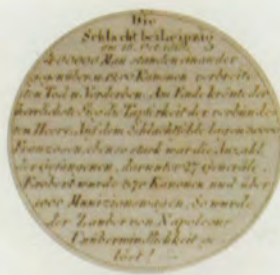 Die
Schlacht bei Leipzig
am 18. Oct. 1813.
Man standen einander
gegenüber, 1200 Kanonen verbreite
ten Tod u. Verderben. Am Ende krönte der
herrlichste Sieg die Tapferkeit der verbünde
ten Heere. Auf dem Schlachtfelde lagen
Franzosen, ebenso stark war die Anzahl
der Gefangenen, darunter 27 Generäle.
Erobert wurde Kanonen und über
1000 Munizionswagen. So wurde
der Zauber von Napoleons
Unüberwindlichkeit ge
löst!